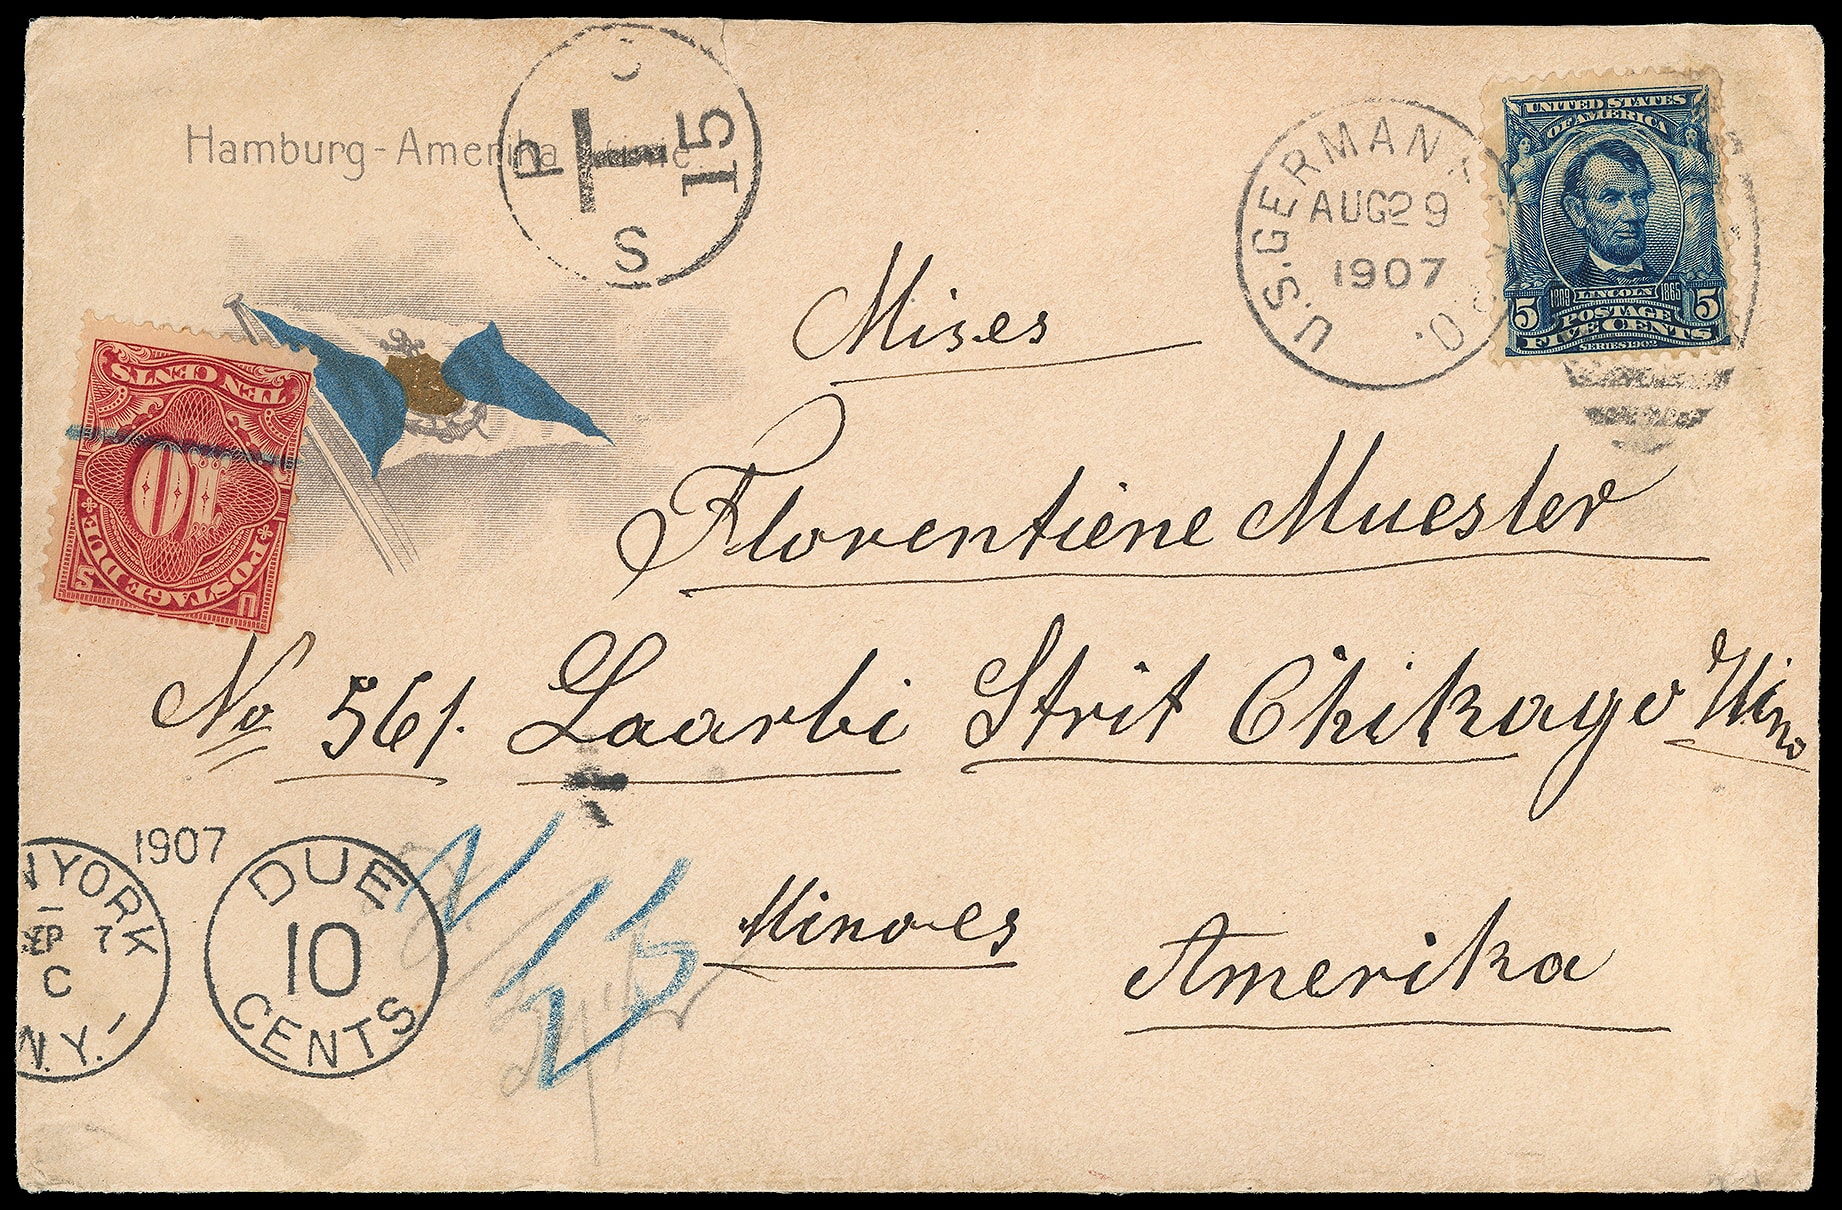 Hamburg-Amerika Linie
P. O. S
T 15
U.S. GERMAN
AUG 29
1907
UNITED STATES
OF AMERICA
1809 LINCOLN 1865
5 POSTAGE 5
FIVE CENTS
SERIES 1902
Mises
TEN CENTS
10
POSTAGE DUE
U S
Florentiene Muesler
No 561. Laarbi Strit Chikago
1907
YORK
SEP 7
C
N.Y.
DUE
10
CENTS
Minoes
Amerika